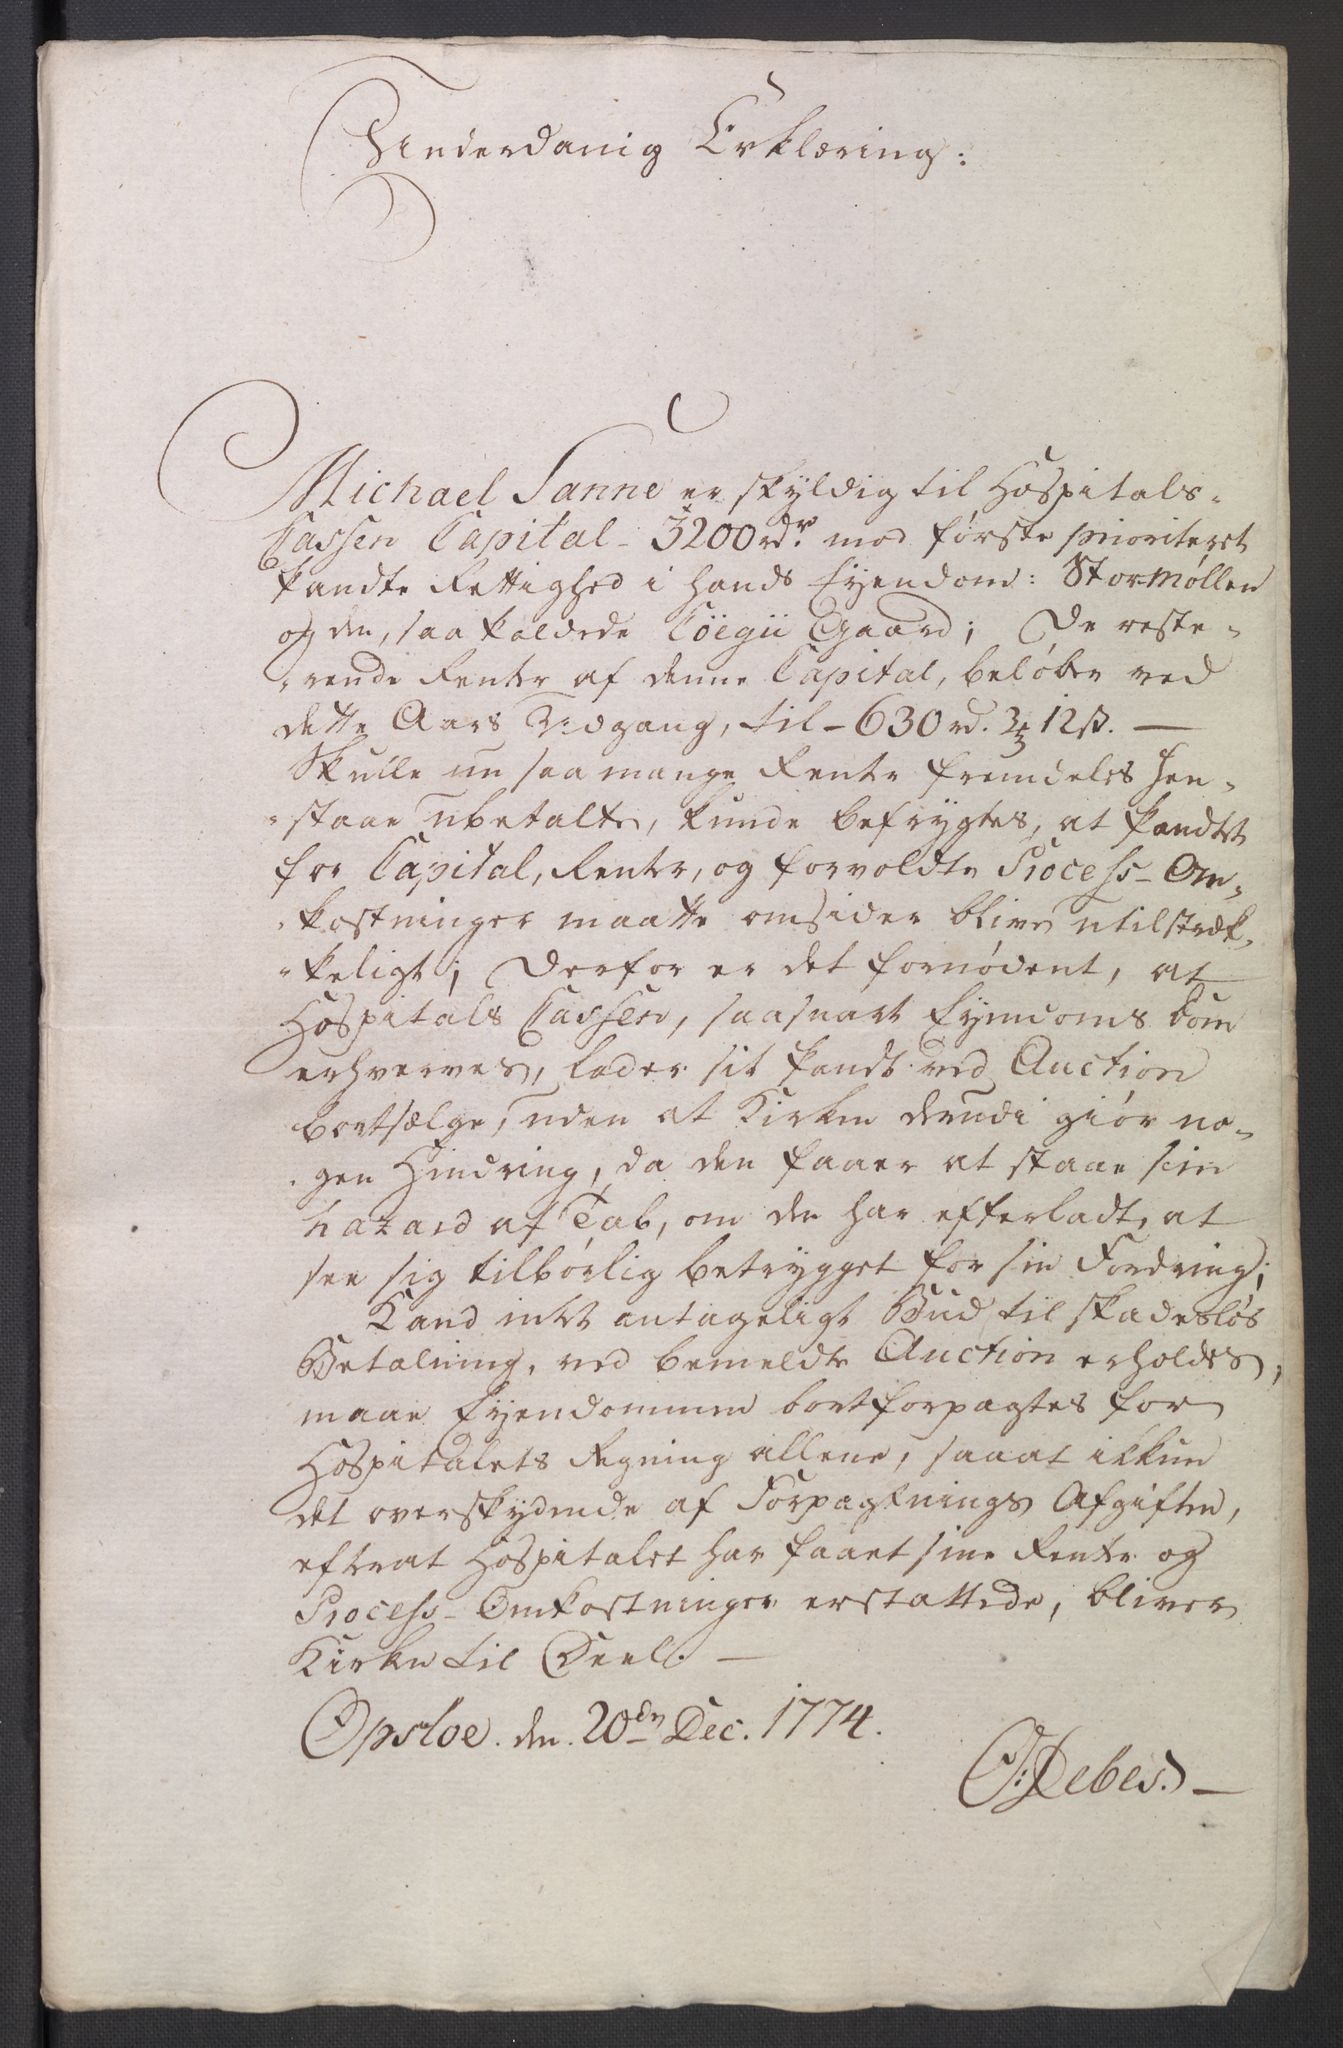 Underdanig Erklæring:
Michael Sanne er skyldig til Hospitals-
Cassen Capital - 3200 rdr. mod første prioriteret
Pandte Rettighed i hands Eyendom: Stormøllen
og den, saa kaldede Gaard; De reste-
-rende Renter af denne Capital, beløber ved
dette Aars Udgang, til - 630 rd. 2 12 ß. —
Skulle nu saa mange Rente fremdeles hen-
-staae ubetalte, kunde befrygtes, at Pandtet
for Capital, Renter, og forvoldte Process-Om-
-kostninger maatte omsider blive utilstræk-
-keligt; Derfor er det fornødent, at
Hospitals Cassen, saasnart Eyendoms Dom
erhverves, lader sit Pandt ved Auction
bortsælge, uden at Kirken derudi giør no-
-gen Hindring, da den faaer at staae sin
hazard af Tab, om den har efterladt, at
see sig tilbørlig betrygget for sin Fordring;
Kand intet antageligt Bud til skadesløs
Betalning, ved bemeldte Auction erholdes,
maae Eyendommen bortforpagtes for
Hospitalets Regning allene, saaat ikkun
det overskydende af Forpagtnings Afgiften,
efterat Hospitalet har faaet sine Rente og
Process-Omkostninger erstattede, bliver
Kirken til Deel. —
Opsloe. den. 20den Dec. 1774.
Debes. —